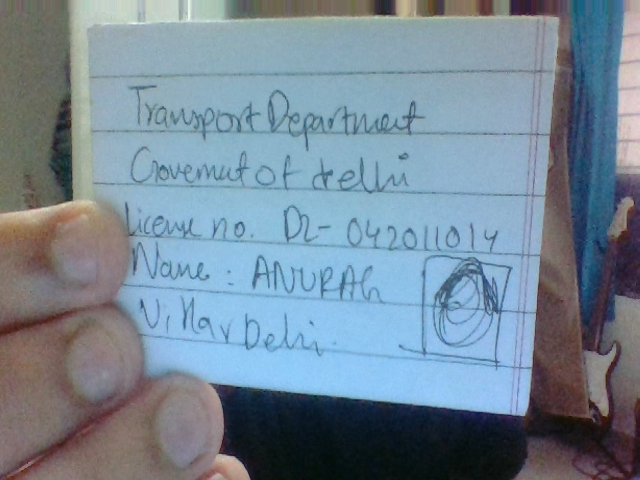 Transport Department
Governut of delhi
License no. DL- 042011014
Name: ANURAG
Delhi.